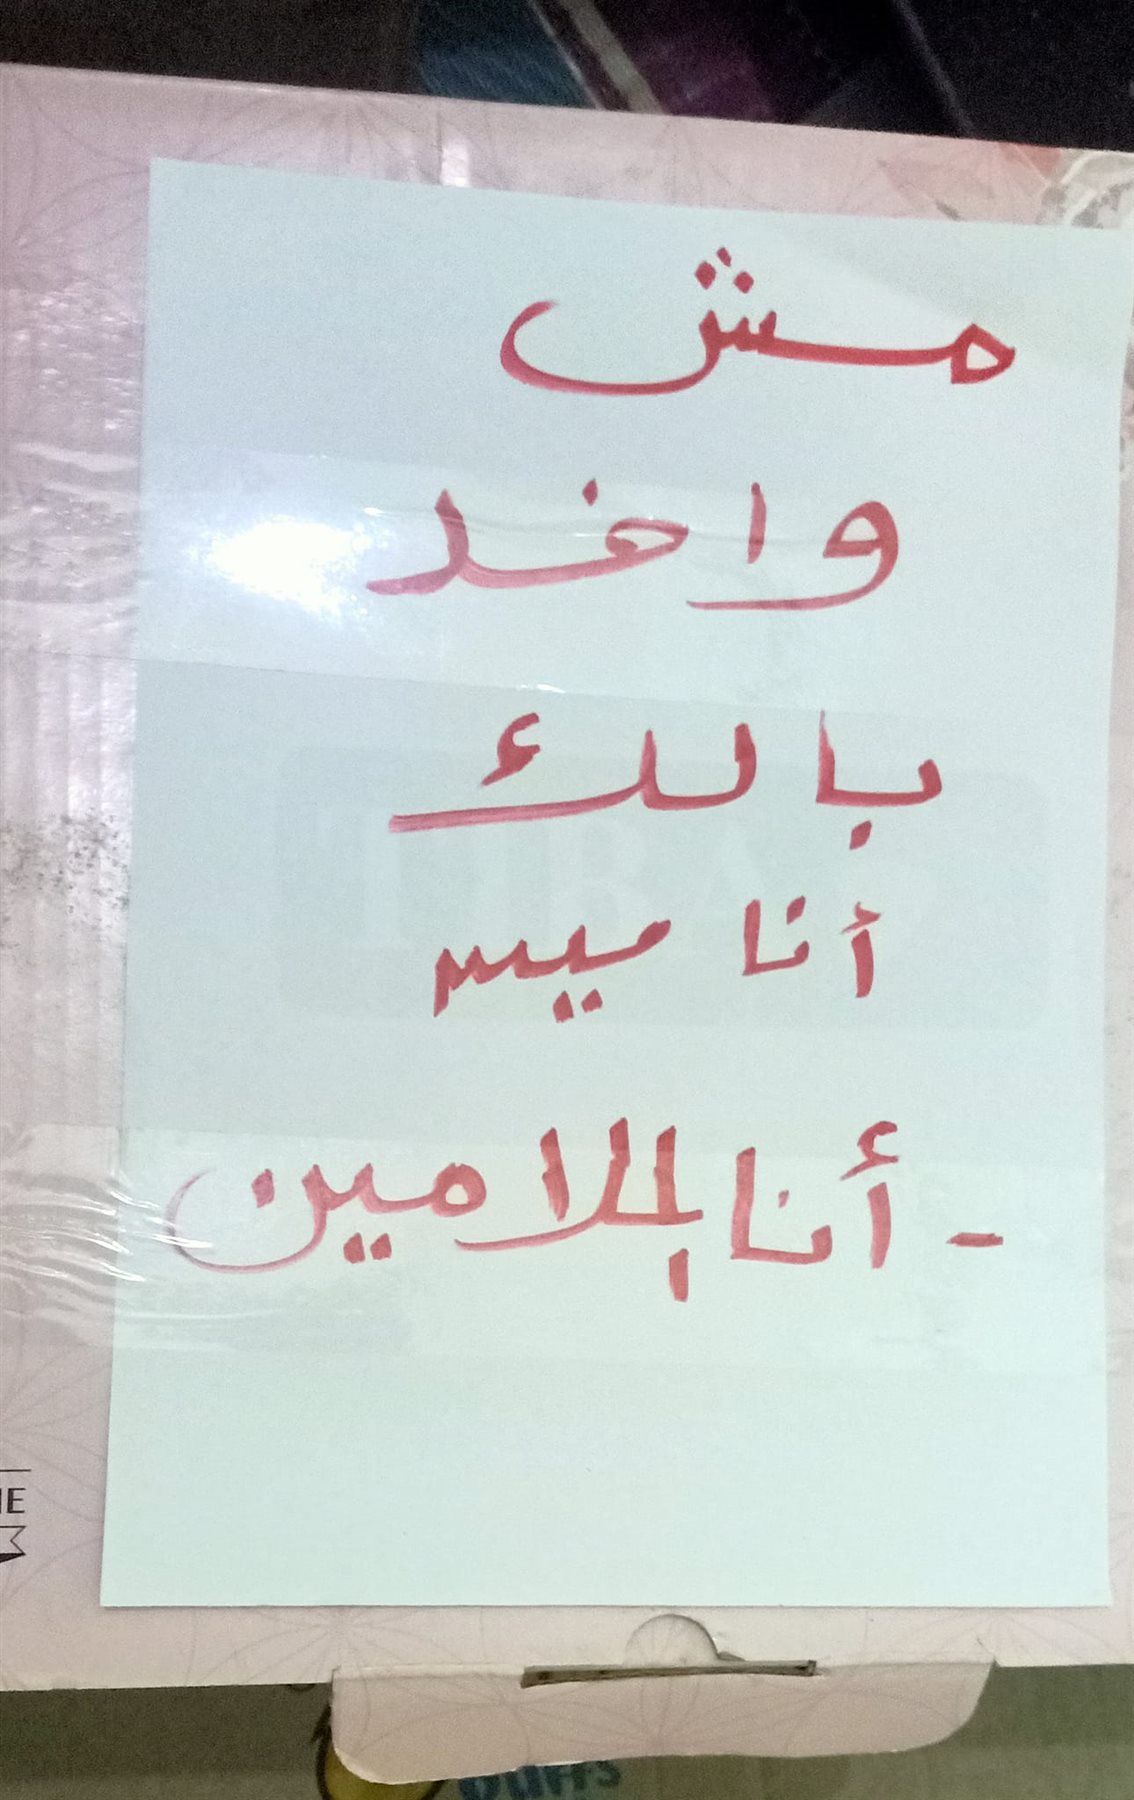 مش
واخد
بالك
أنا ميس
- أنا بالملامين
IE